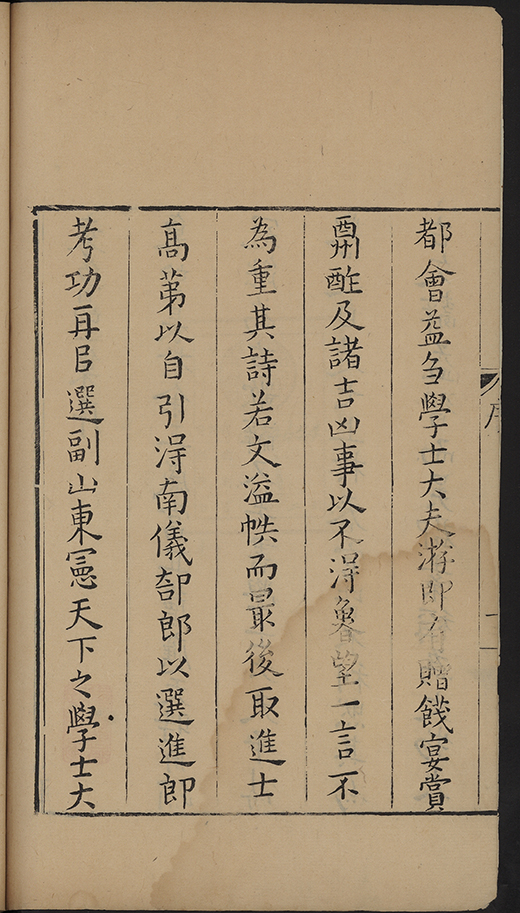 都會益多學士大夫游即有贈餞宴賞
酬酢及諸吉凶事以不淂魯望一言不
為重其詩若文溢帙而最後取進士
髙苐以自引淂南儀部郎以選進郎
考功再以選副山東憲天下之學士大
序
二